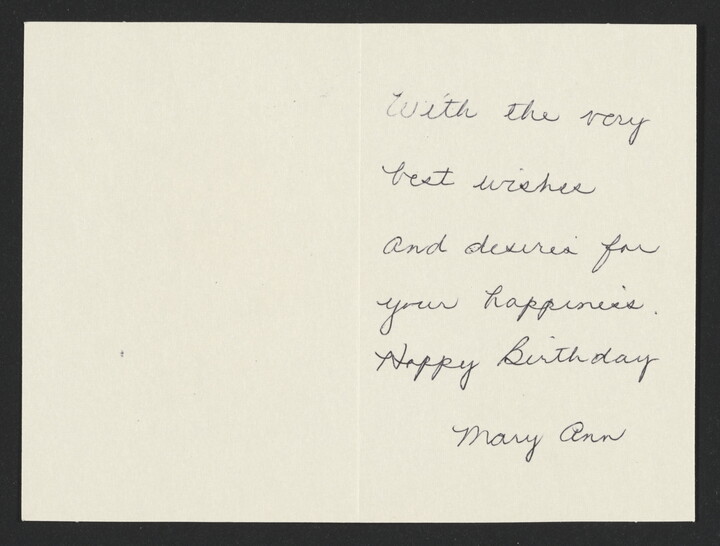 With the very
best wishes
and desires for
your happiness.
Happy Birthday
Mary Ann